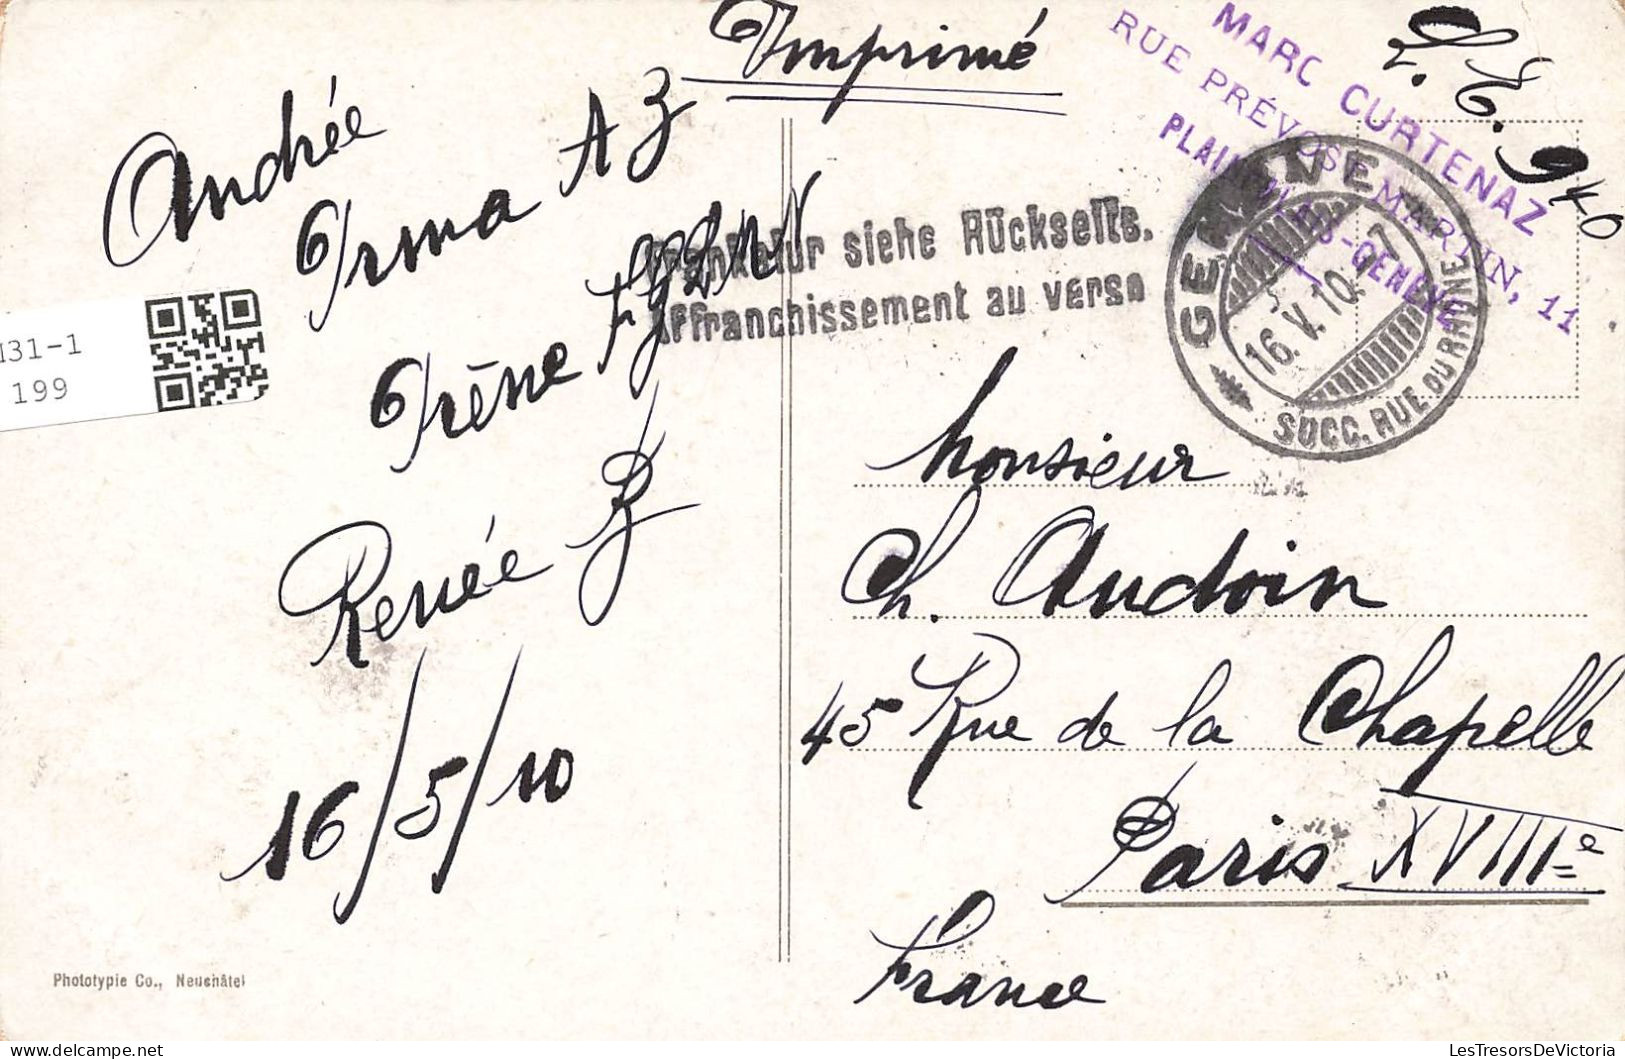 Imprimé
L. E. 940
MARC CURTENAZ
RUE PRÉVOST-MARTIN, 11
PLAINPALAIS-GENÈVE
GENÈVE
16.V.10.-7
SUCC. RUE DU RHÔNE
Frankatur siehe Rückseite.
Affranchissement au verso
Andrée
Irma A Z
Irène
Renée B
16/5/10
Monsieur
Ch. Audoin
45 Rue de la Chapelle
Paris XVIIIe
France
Phototypie Co., Neuchâtel
131-1
199
LesTresorsDeVictoria